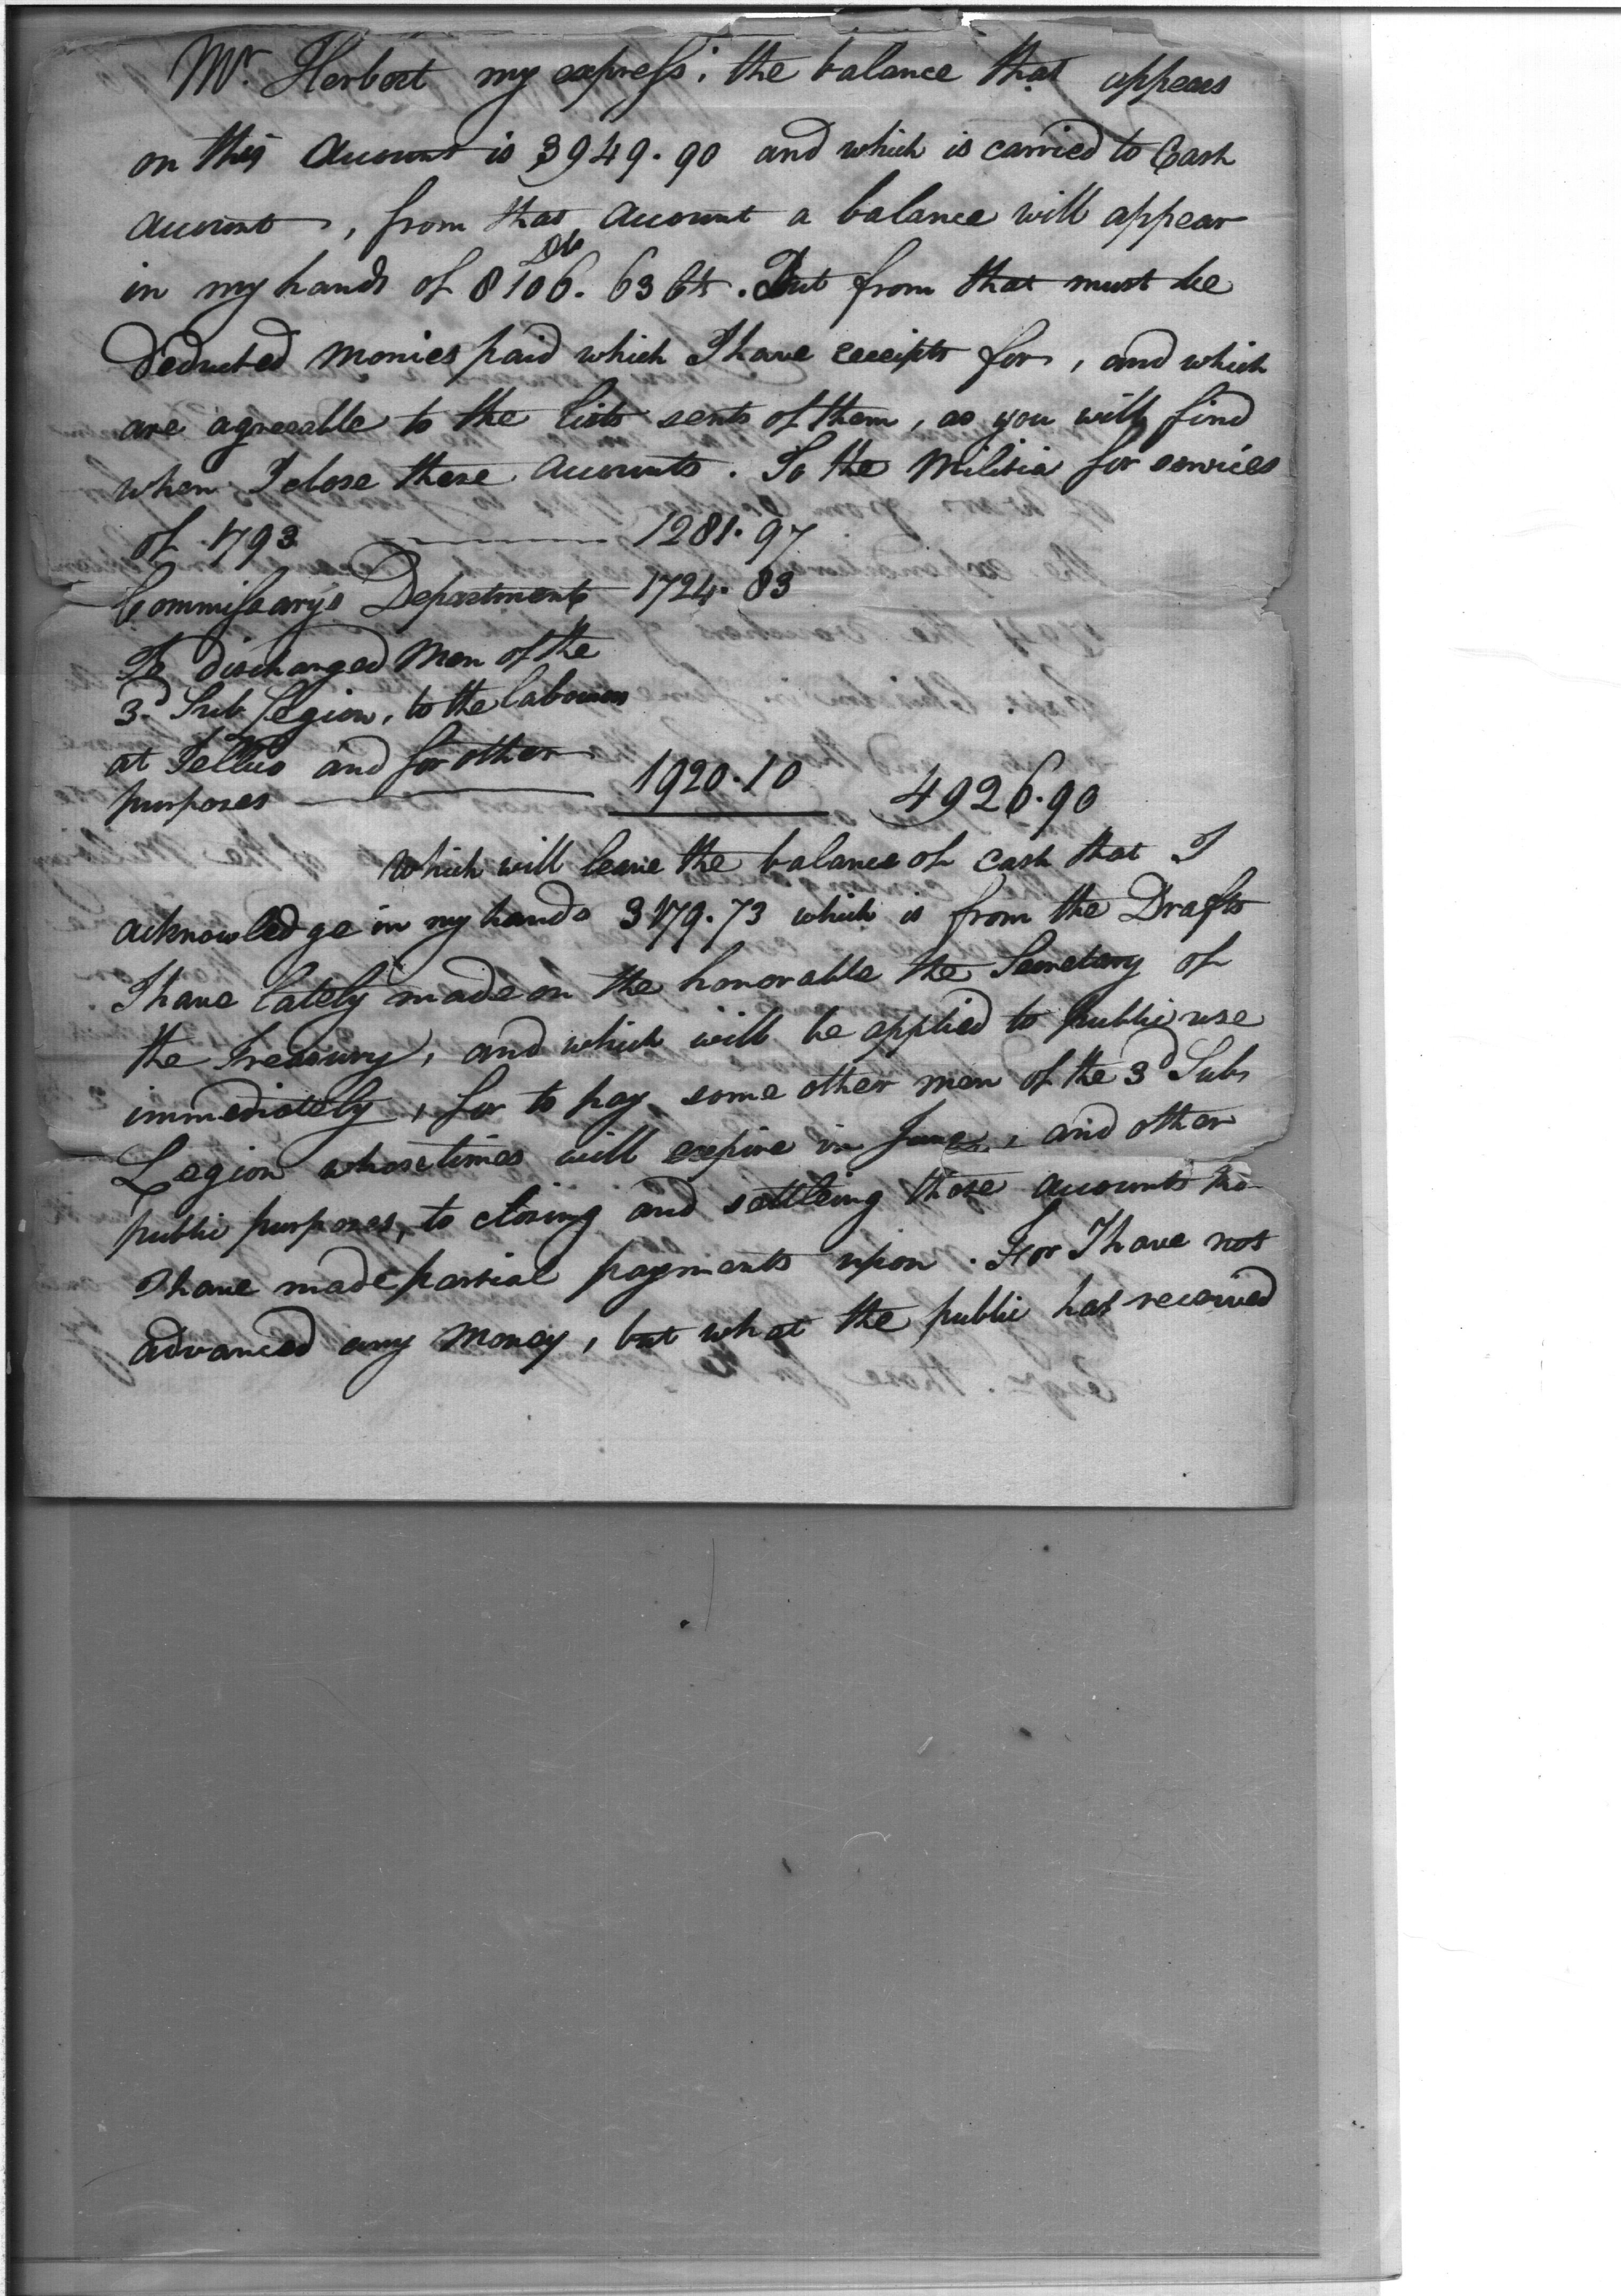 Mr. Herbert my express; the balance that appears
on this Account is 3949.90 and which is carried to Cash
account, from that account a balance will appear
Ds
in my hands of 8106.63 Cts. But from that must be
deducted monies paid which I have receipts for, and which
are agreeable to the lists sent of them, as you will find
when I close these Accounts. To the Militia for services
of 1793 1281.97
Commissary's Department 1724.83
To discharged Men of the
3d Sub Legion, to the labourers
at Tellico and for other
purposes 1920.10 4926.90
Which will leave the balance of cash that I
acknowledge in my hands 3179.73 which is from the Drafts
I have lately made on the honorable the Secretary of
the Treasury, and which will be applied to public use
immediately, for to pay some other men of the 3d Sub
Legion whose times will expire in June, and other
public purposes, to closing and settleing those accounts tho
I have made partial payments upon. For I have not
advanced any Money, but what the public has received